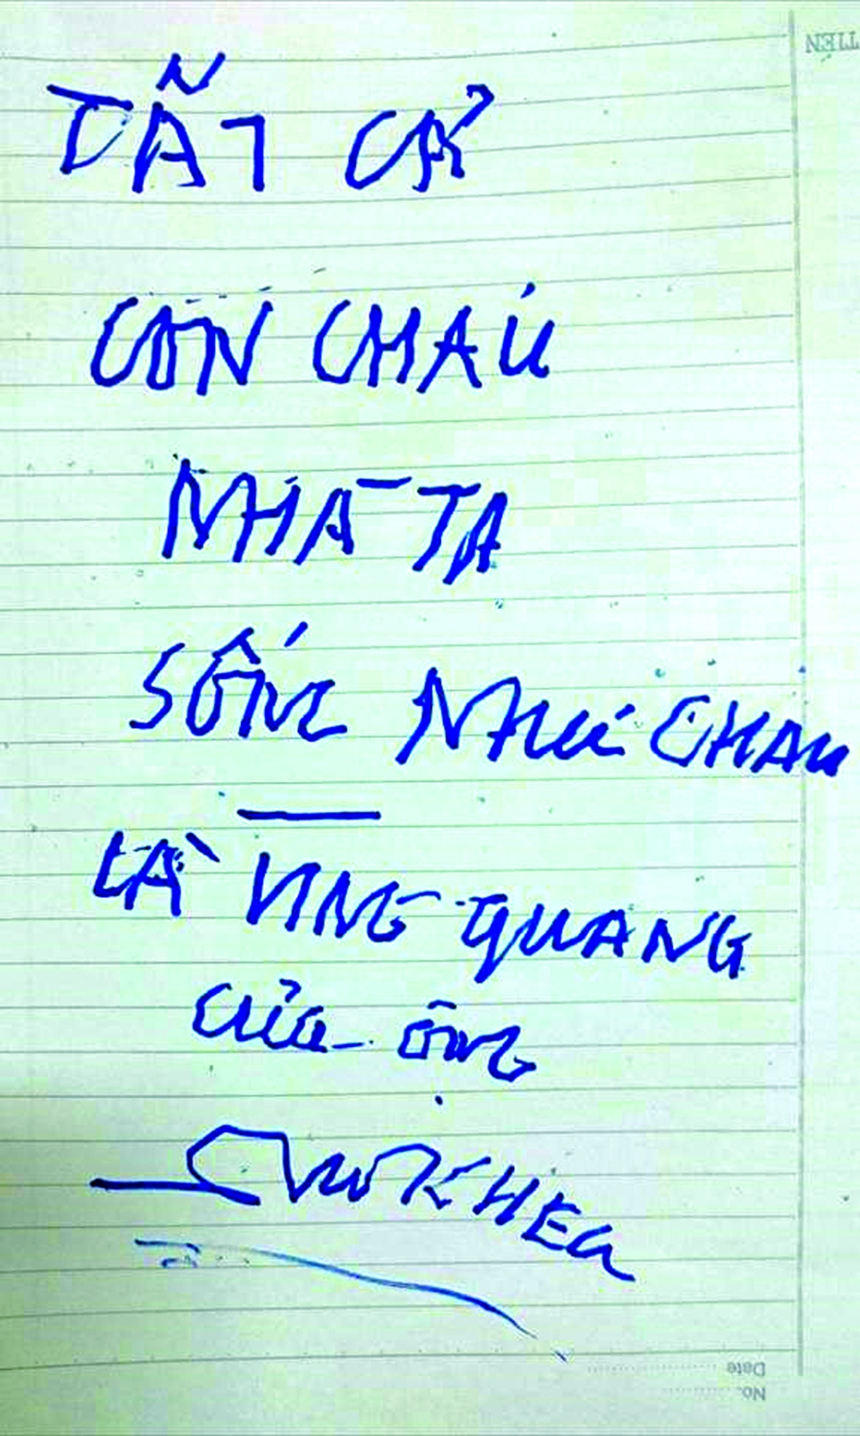 TẤT CẢ
CON CHÁU
NHÀ TA
SỐNG NHƯ CHAU
LÀ VING QUANG
CỦA ÔNG
Date
No.